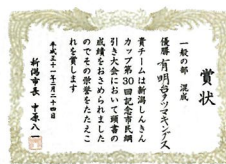 賞状
一般の部 混成
優勝 有明台アツマキングス
貴チームは新潟しんきん
カップ第30回記念市民綱
引き大会において頭書の
成績をおさめられました
のでその栄誉をたたえこ
れを賞します
平成三十一年二月二十四日
新潟市長 中原八一